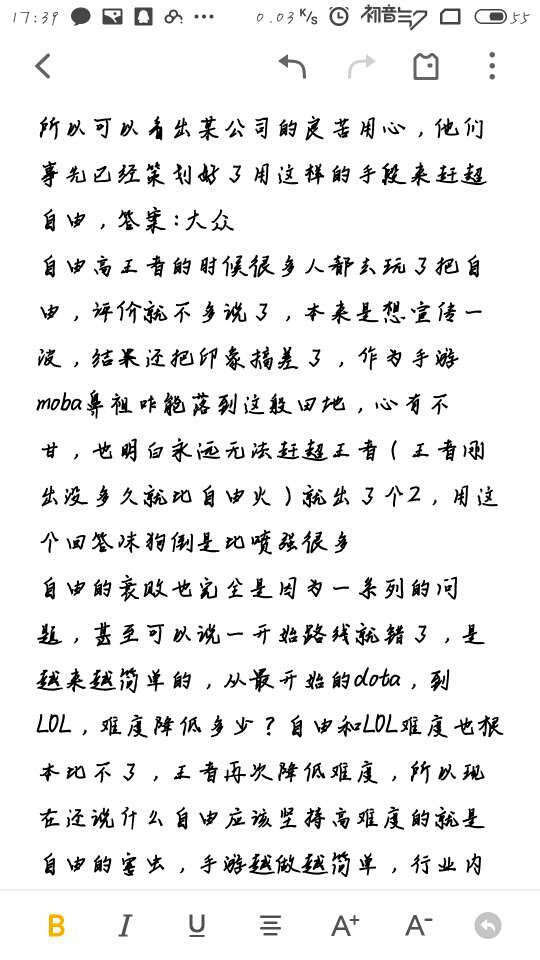 17:39 ... 0.03K/s 初音 55
所以可以看出某公司的良苦用心，他们
事先已经策划好了用这样的手段来赶超
自由，答案：大众
自由高王者的时候很多人都去玩了把自
由，评价就不多说了，本来是想宣传一
波，结果还把印象搞差了，作为手游
moba鼻祖咋能落到这般田地，心有不
甘，也明白永远无法赶超王者（王者刚
出没多久就比自由火）就出了个2，用这
个回答沫狗倒是比喷强很多
自由的衰败也完全是因为一系列的问
题，甚至可以说一开始路线就错了，是
越来越简单的，从最开始的dota，到
LOL，难度降低多少？自由和LOL难度也根
本比不了，王者再次降低难度，所以现
在还说什么自由应该坚持高难度的就是
自由的害虫，手游越做越简单，行业内
B I U A+ A-